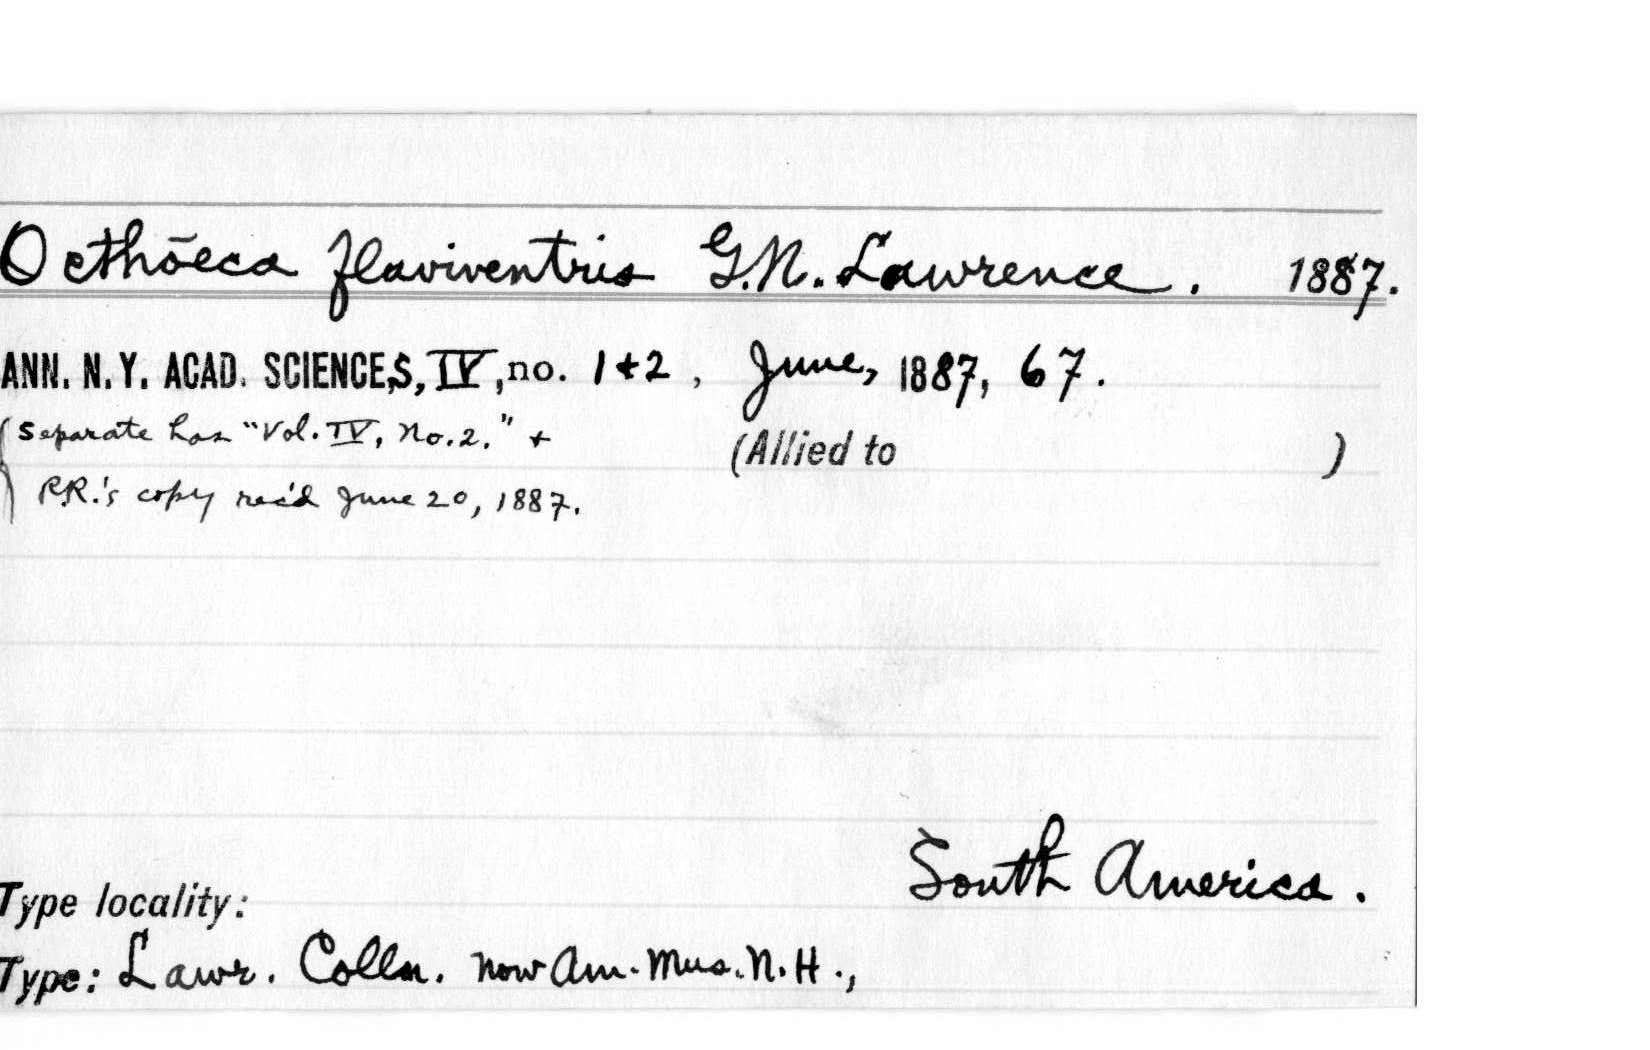 Octhōeca flaviventris G.N. Lawrence. 1887.
ANN. N. Y. ACAD. SCIENCES, IV, no. 1+2, June, 1887, 67.
(Separate has "Vol. IV, No. 2." +
(Allied to )
R.R.'s copy rec'd June 20, 1887.
South America.
Type locality:
Type: Lawr. Colln. now Am. Mus. N. H.,